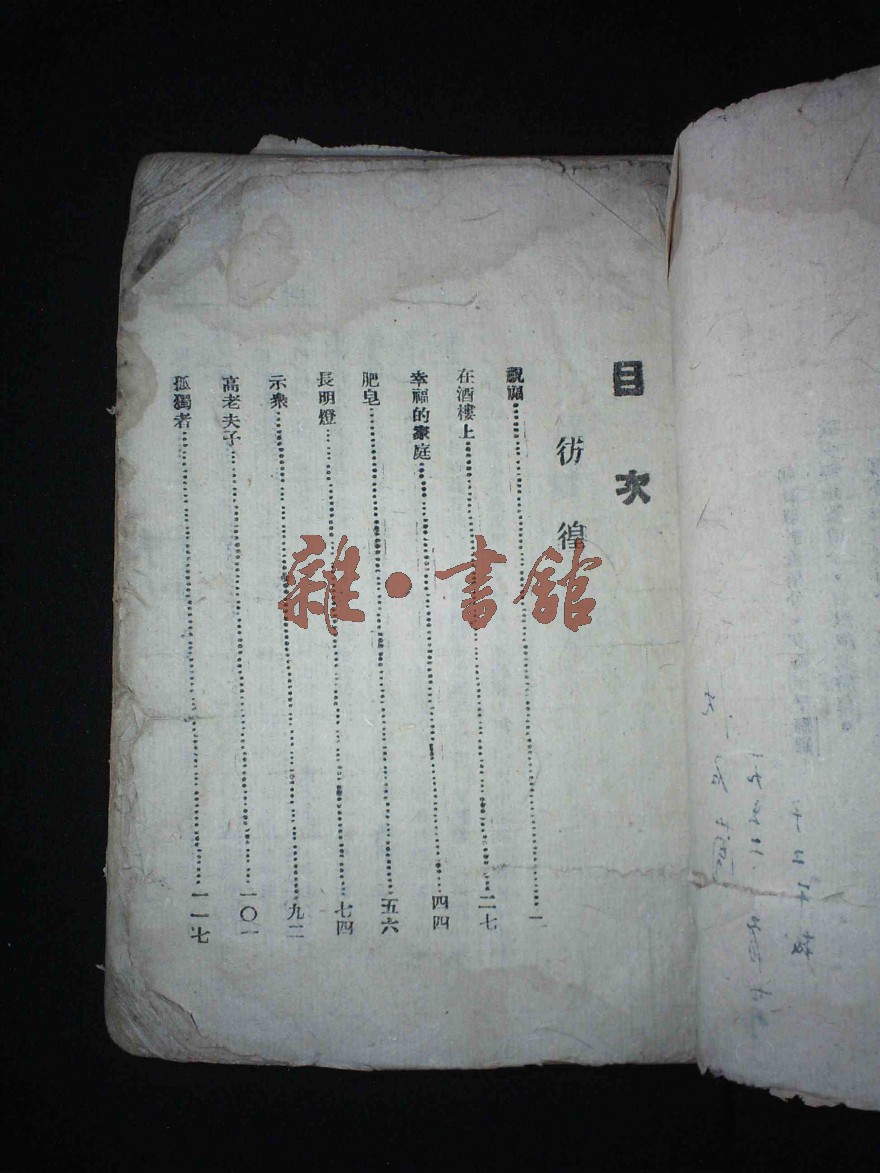 目次
彷徨
祝福……一
在酒樓上……二七
幸福的家庭……四四
肥皂……五六
長明燈……七四
示衆……九二
高老夫子……一〇一
孤獨者……一一七
雜·書館